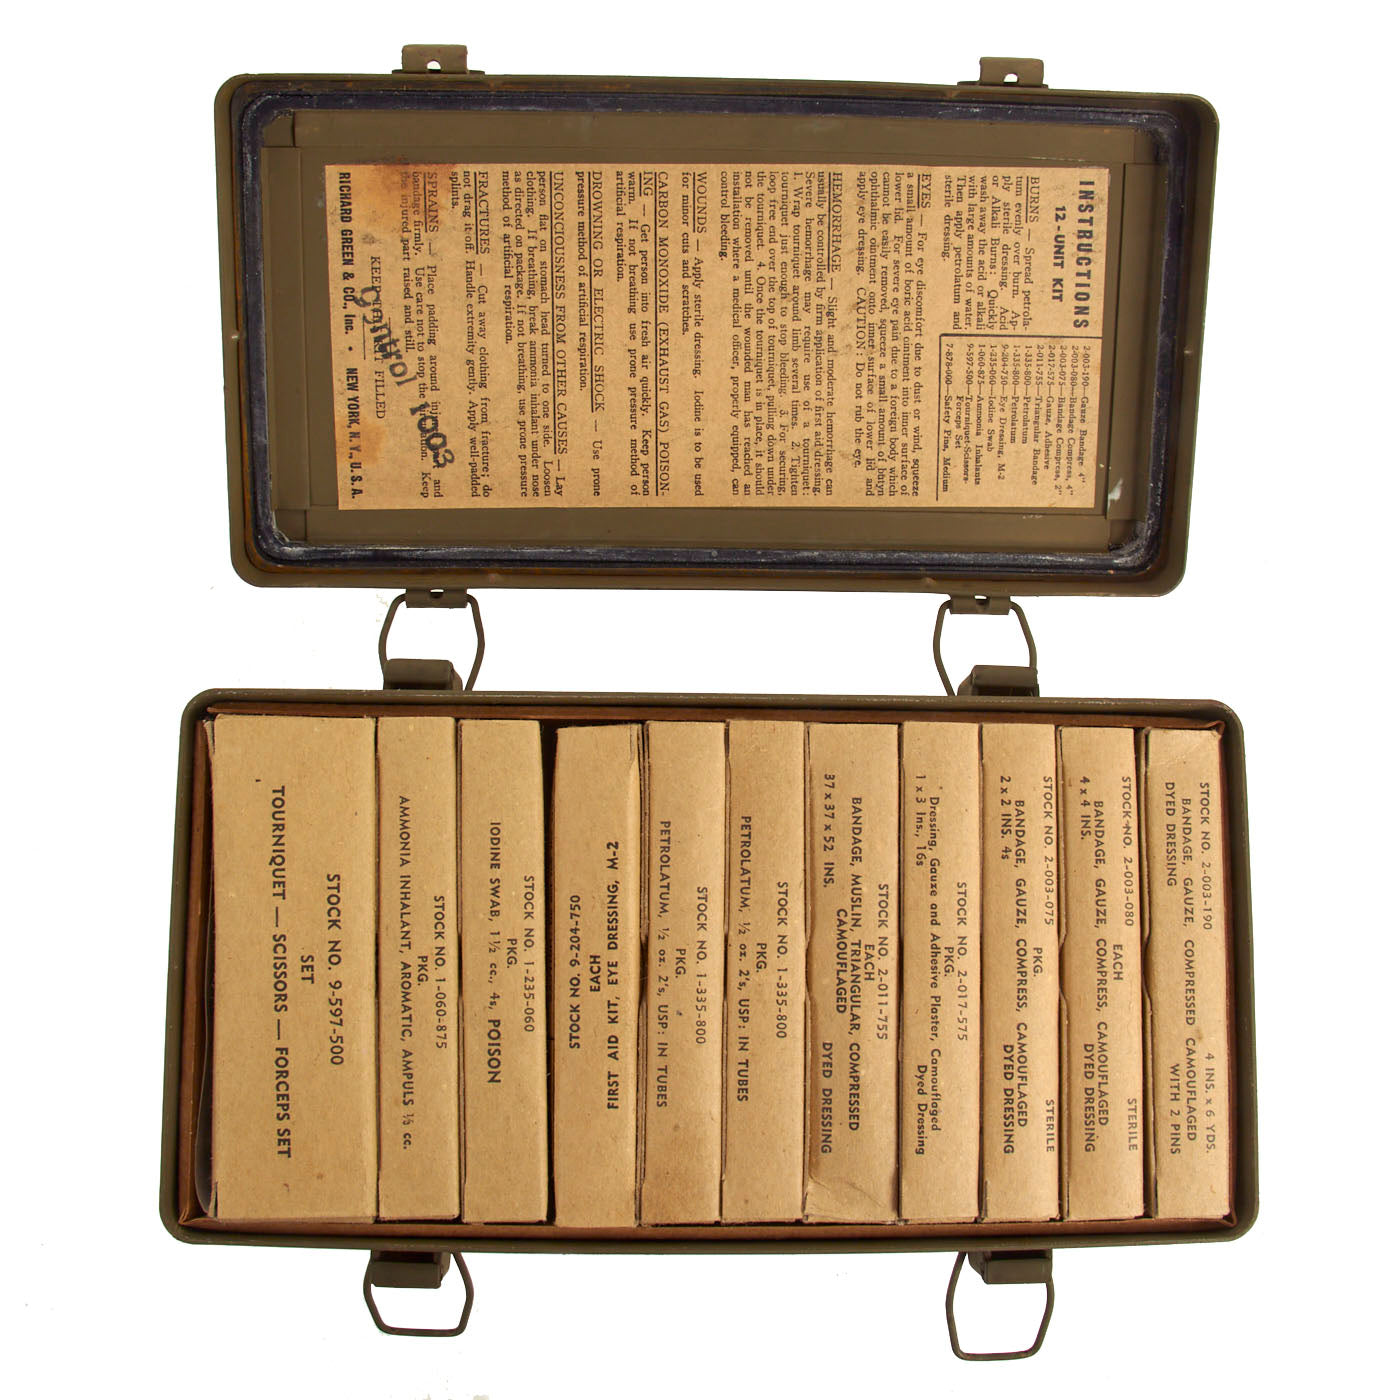 INSTRUCTIONS
12-UNIT KIT
BURNS — Spread petrola-
tum evenly over burn. Ap-
ply sterile dressing. Acid
or Alkali Burns: Quickly
wash away the acid or alkali
with large amounts of water.
Then apply petrolatum and
sterile dressing.
2-003-190—Gauze Bandage 4"
2-003-080—Bandage Compress, 4"
2-003-075—Bandage Compress, 2"
2-017-575—Gauze, Adhesive
2-011-755—Triangular Bandage
1-335-800—Petrolatum
1-335-800—Petrolatum
9-204-750—Eye Dressing, M-2
1-235-060—Iodine Swab
1-060-875—Ammonia Inhalants
9-597-500—Tourniquet-Scissors-
Forceps Set
7-878-000—Safety Pins, Medium
EYES — For eye discomfort due to dust or wind, squeeze
a small amount of boric acid ointment into inner surface of
lower lid. For severe eye pain due to a foreign body which
cannot be easily removed, squeeze small amount of butyn
ophthalmic ointment onto inner surface of lower lid and
apply eye dressing. CAUTION: Do not rub the eye.
HEMORRHAGE — Slight and moderate hemorrhage can
usually be controlled by firm application of first aid dressing.
Severe hemorrhage may require use of a tourniquet:
1. Wrap tourniquet around limb several times. 2. Tighten
tourniquet just enough to stop bleeding. 3. For securing,
loop free end over the top of tourniquet, pulling down under
the tourniquet. 4. Once the tourniquet is in place, it should
not be removed until the wounded man has reached an
installation where a medical officer, properly equipped, can
control bleeding.
WOUNDS — Apply sterile dressing. Iodine is to be used
for minor cuts and scratches.
CARBON MONOXIDE (EXHAUST GAS) POISON-
ING — Get person into fresh air quickly. Keep person
warm. If not breathing use prone pressure method of
artificial respiration.
DROWNING OR ELECTRIC SHOCK — Use prone
pressure method of artificial respiration.
UNCONCIOUSNESS FROM OTHER CAUSES — Lay
person flat on stomach head turned to one side. Loosen
clothing. If breathing, break ammonia inhalant under nose
as directed on package. If not breathing, use prone pressure
method of artificial respiration.
FRACTURES — Cut away clothing from fracture; do
not drag it off. Handle extremely gently. Apply well-padded
splints.
SPRAINS — Place padding around injured part and
bandage firmly. Use care not to stop the circulation. Keep
the injured part raised and still.
KEEP THIS KIT FILLED
Control 1003
RICHARD GREEN & CO., Inc. • NEW YORK, N. Y., U. S. A.
STOCK NO. 2-003-190 4 INS. x 6 YDS.
BANDAGE, GAUZE, COMPRESSED CAMOUFLAGED
DYED DRESSING WITH 2 PINS
STOCK NO. 2-003-080 EACH STERILE
BANDAGE, GAUZE, COMPRESS, CAMOUFLAGED
4 x 4 INS. DYED DRESSING
STOCK NO. 2-003-075 PKG. STERILE
BANDAGE, GAUZE, COMPRESS, CAMOUFLAGED
2 x 2 INS. 4s DYED DRESSING
STOCK NO. 2-017-575
PKG.
Dressing, Gauze and Adhesive Plaster, Camouflaged
1 x 3 Ins., 16s Dyed Dressing
STOCK NO. 2-011-755
EACH
BANDAGE, MUSLIN, TRIANGULAR, COMPRESSED
CAMOUFLAGED
37 x 37 x 52 INS. DYED DRESSING
STOCK NO. 1-335-800
PKG.
PETROLATUM, ½ oz. 2's, USP: IN TUBES
STOCK NO. 1-335-800
PKG.
PETROLATUM, ½ oz. 2's, USP: IN TUBES
FIRST AID KIT, EYE DRESSING, M-2
EACH
STOCK NO. 9-204-750
STOCK NO. 1-235-060
PKG.
IODINE SWAB, 1½ cc., 4s, POISON
STOCK NO. 1-060-875
PKG.
AMMONIA INHALANT, AROMATIC, AMPULS ⅓ cc.
STOCK NO. 9-597-500
SET
TOURNIQUET — SCISSORS — FORCEPS SET